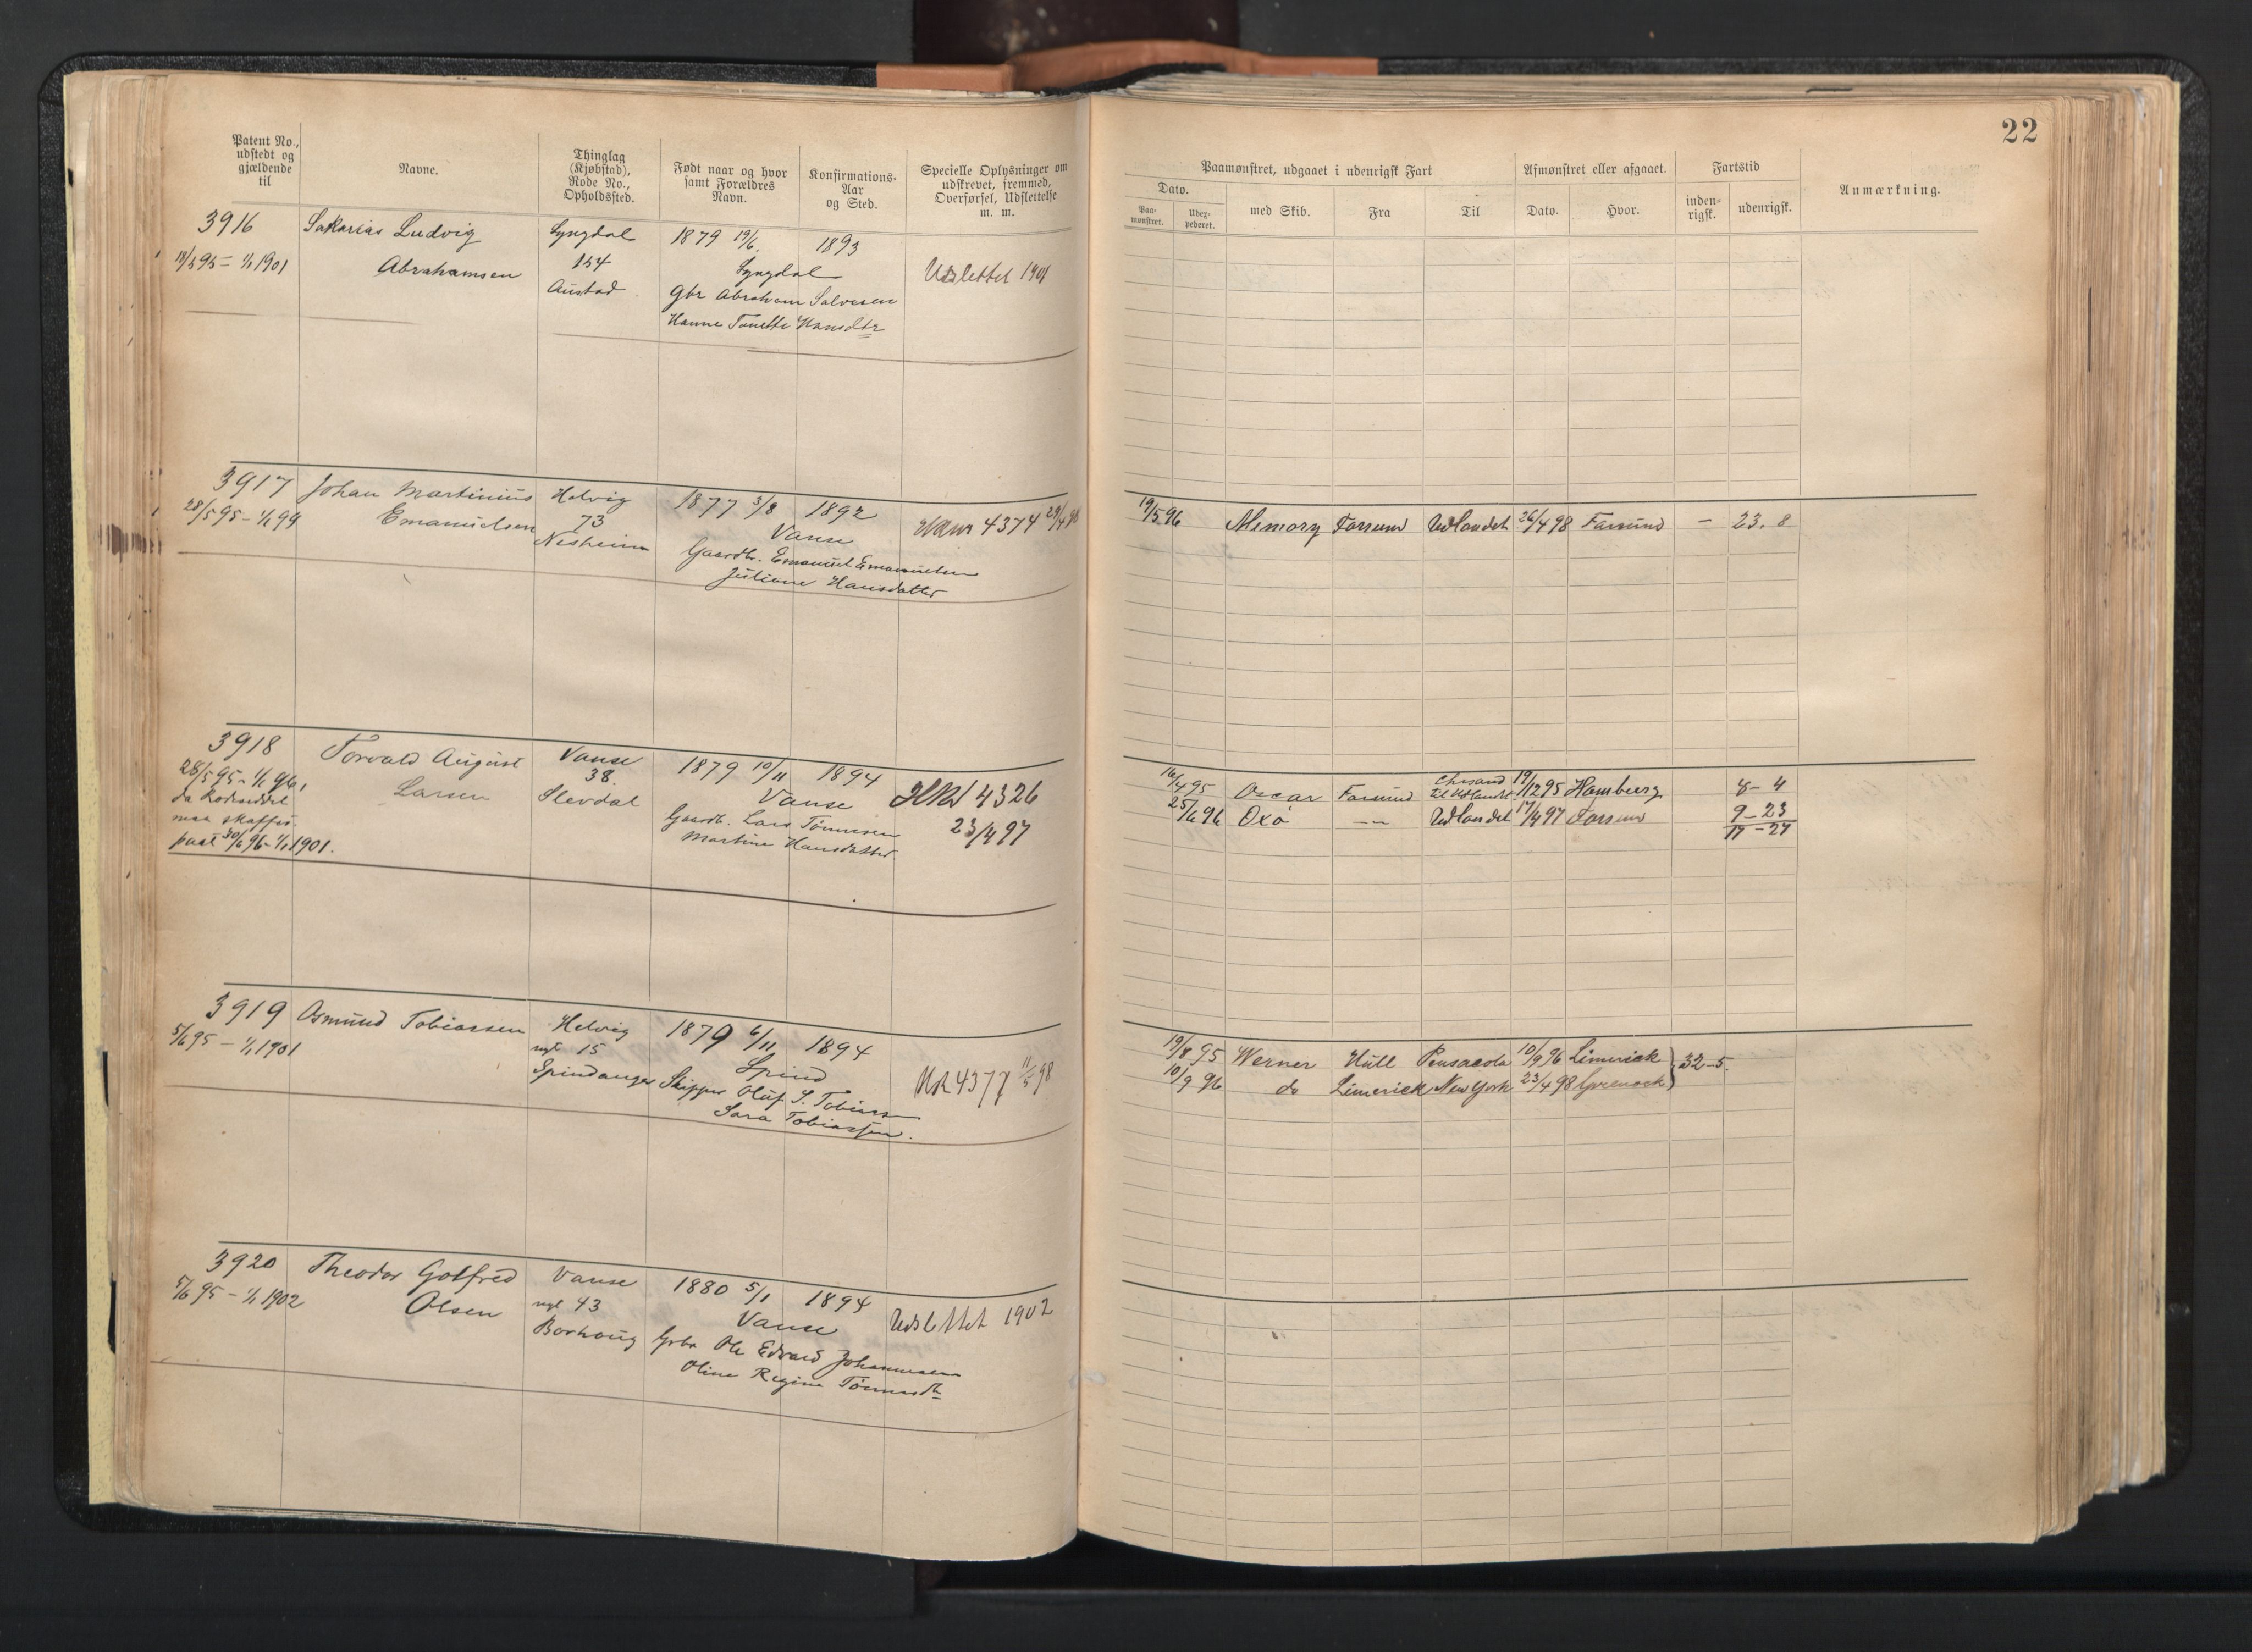 22
Patent No., udstedt og gjældende til
Navne.
Thinglag (Kjøbstad), Rode No., Opholdssted.
Født naar og hvor samt Forældres Navn.
Konfirmations-Aar og Sted.
Specielle Oplysninger om udskrevet, fremmed, Overførsel, Udslettelse m. m.
Paamønstret, udgaaet i udenrigsk Fart
Afmønstret eller afgaaet.
Fartstid
Anmærkning.
Dato.
Paa-mønstret.
med Skib.
Fra
Til
Dato.
Hvor.
inden-rigsk.
udenrigsk.
3916 Sakarias Ludvig Lyngdal 1879 19/6 1893
18/5 95 - 1/1 1901 Abrahamsen 154 Lyngdal Udslettet 1901
Austad Gbr Abraham Salvesen
Hanne Tonette Hansdtr
3917 Johan Martinius Helvig 1877 3/8 1892
28/5 95 - 1/1 99 Emanuelsen 73 Vanse 4374 29/4 98
Nesheim Gaardb. Emanuel Emanuelsen
Juliane Hansdatter
19/5 96 Memory Farsund Udlandet 26/4 98 Farsund - 23. 8
3918 Torvald August Vanse 1879 10/11 1894
28/5 95 - 1/1 96, Larsen 38. Vanse 4326
da Rodeseddel Slevdal Gaardb. Lars Tønnesen 23/4 97
maa skaffes. Martine Hansdatter.
30/6 96 - 1/1 1901.
16/4 95 Oscar Farsund Chrsand til Udlandet 19/12 95 Hamburg 8 - 4
25/6 96 Oxø -- Udlandet 17/4 97 Farsund 9 - 23
17 - 27
3919 Osmund Tobiassen Helvig 1879 6/11 1894
5/6 95 - 1/1 1901 nyt 15 Spind 4377 11/5 98
Spindanger Skipper Oluf S. Tobiassen
Sara Tobiassen.
19/8 95 Werner Hull Pensacola 10/9 96 Limerick } 32 - 5.
10/9 96 do Limerick New York 23/4 98 Greenock
3920 Theodor Gotfred Vanse 1880 5/1 1894
5/6 95 - 1/1 1902 Olsen nyt 43 Vanse Udslettet 1902
Borhaug Gbr Ole Edvard Johannesen
Oline Regine Tønnesdtr